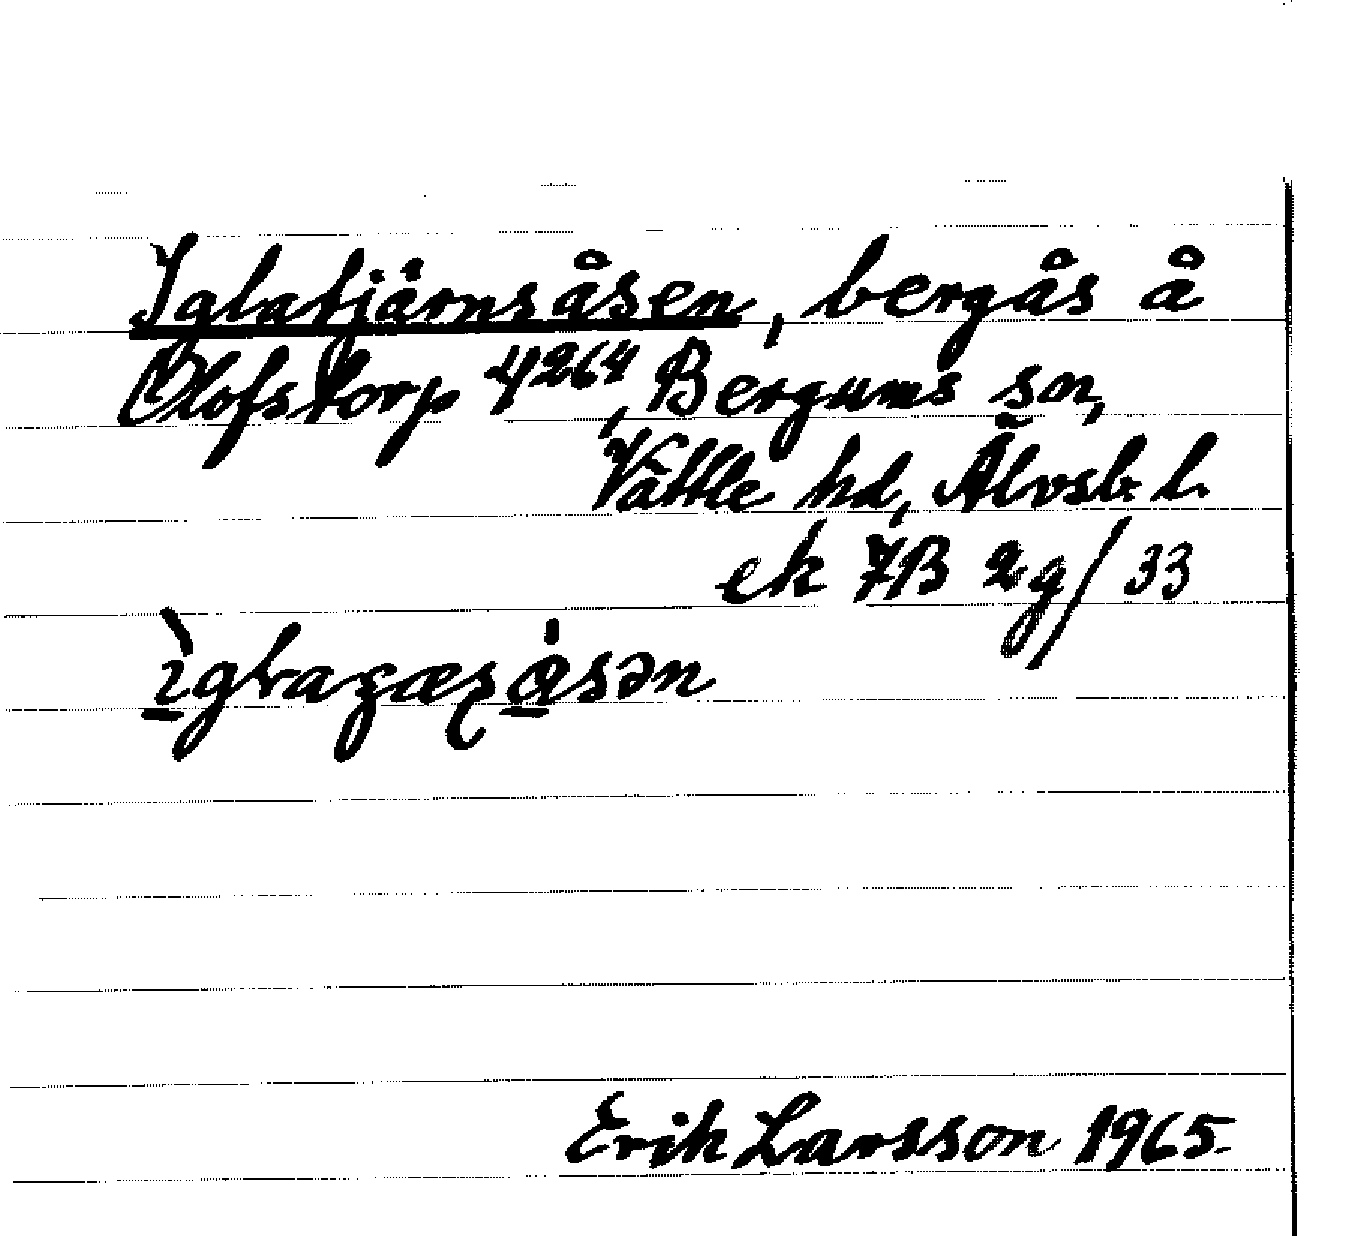 Iglatjärnsåsen, bergås å
Olofstorp 4²⁶⁴, Bergums sn,
Vättle hd, Älvsb. l.
ek 7B 2g/33
Erik Larsson 1965.